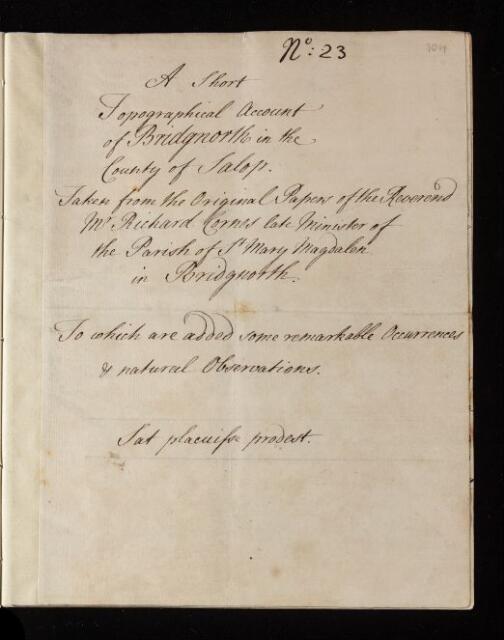 No: 23
104
A Short
Topographical Account
of Bridgnorth in the
County of Salop.
Taken from the Original Papers of the Reverend
Mr Richard Cornes late Minister of
the Parish of St Mary Magdalen
in Bridgnorth.
To which are added some remarkable Occurrences
& natural Observations.
Sat placuiſse prodest.